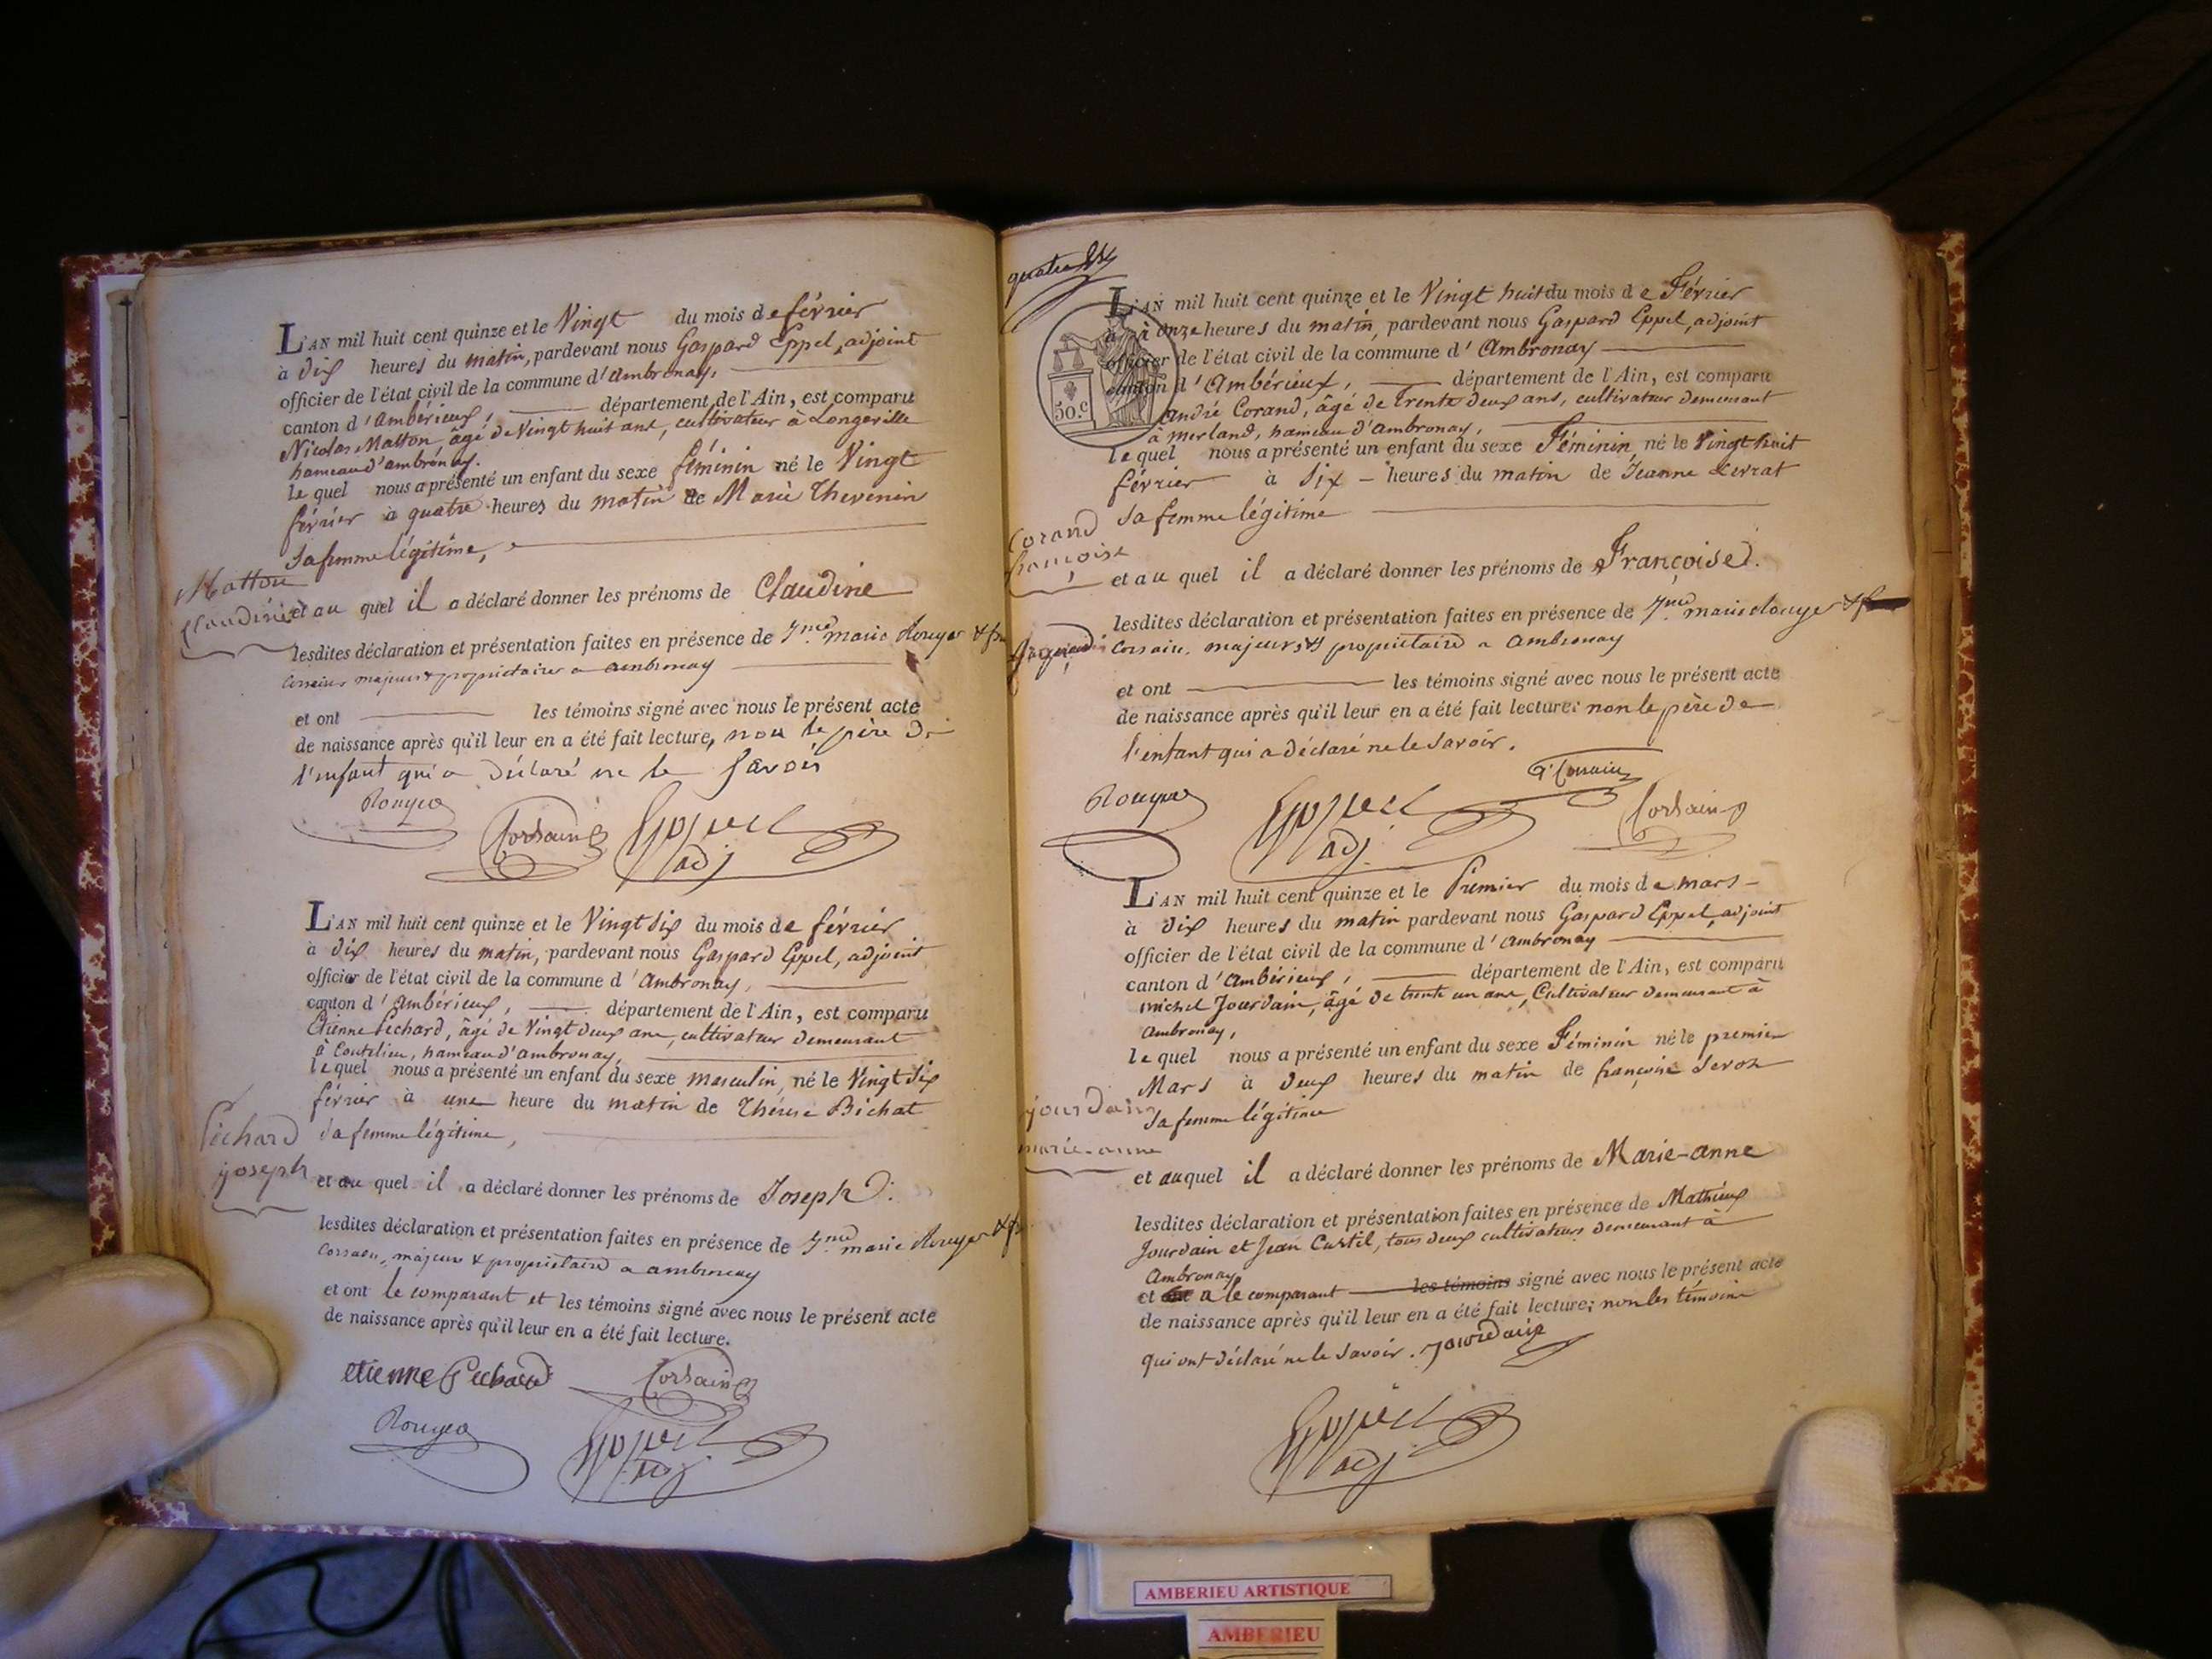 L'AN mil huit cent quinze et le Vingt du mois de février
à dix heures du matin, pardevant nous Gaspard Eppel, adjoint
officier de l'état civil de la commune d'Ambronay,
canton d'Ambérieux, département de l'Ain, est comparu
Nicolas Matton, âgé de Vingt huit ans, cultivateur à Longeville
hameau d'ambronay.
le quel nous a présenté un enfant du sexe féminin né le Vingt
février à quatre heures du matin de Marie Thevenin
sa femme légitime,
Matton
Claudine
et au quel il a déclaré donner les prénoms de Claudine
lesdites déclaration et présentation faites en présence de marie Rouyer &
majeurs & propriétaires a ambronay
et ont les témoins signé avec nous le présent acte
de naissance après qu'il leur en a été fait lecture, non le père de
l'enfant qui a déclaré ne le savoir
Rouyer
Corsain
Eppel
adj
L'AN mil huit cent quinze et le Vingt six du mois de février
à dix heures du matin, pardevant nous Gaspard Eppel, adjoint
officier de l'état civil de la commune d'Ambronay,
canton d'Ambérieux, département de l'Ain, est comparu
Etienne Péchard, âgé de Vingt deux ans, cultivateur demeurant
à Coutelieu, hameau d'ambronay,
le quel nous a présenté un enfant du sexe masculin, né le Vingt six
février à une heure du matin de Thérese Bichat
sa femme légitime,
Péchard
joseph
et au quel il a déclaré donner les prénoms de Joseph
lesdites déclaration et présentation faites en présence de marie Rouyer &
majeurs & propriétaires a ambronay
et ont le comparant et les témoins signé avec nous le présent acte
de naissance après qu'il leur en a été fait lecture.
etienne Pechard
Corsain
Rouyer
Eppel
adj
L'AN mil huit cent quinze et le Vingt huit du mois de Février
à onze heures du matin, pardevant nous Gaspard Eppel, adjoint
officier de l'état civil de la commune d'Ambronay
canton d'Ambérieux, département de l'Ain, est comparu
50.c
andré Corand, âgé de trente deux ans, cultivateur demeurant
à merland, hameau d'ambronay,
le quel nous a présenté un enfant du sexe Féminin, né le Vingt huit
février à six heures du matin de Jeanne Levrat
sa femme légitime
Corand
françoise
et au quel il a déclaré donner les prénoms de Françoise.
lesdites déclaration et présentation faites en présence de marie Rouyer &
majeurs & propriétaires a ambronay
et ont les témoins signé avec nous le présent acte
de naissance après qu'il leur en a été fait lecture: non le père de
l'enfant qui a déclaré ne le savoir.
Rouyer
Eppel
adj
Corsain
L'AN mil huit cent quinze et le Premier du mois de mars
à dix heures du matin pardevant nous Gaspard Eppel, adjoint
officier de l'état civil de la commune d'Ambronay
canton d'Ambérieux, département de l'Ain, est comparu
michel Jourdain, âgé de trente un ans, Cultivateur demeurant à
ambronay,
le quel nous a présenté un enfant du sexe Féminin né le premier
Mars à deux heures du matin de françoise
sa femme légitime
jourdain
marie-anne
et auquel il a déclaré donner les prénoms de Marie-anne
lesdites déclaration et présentation faites en présence de Mathieux
Jourdain et Jean Curtil, tous deux cultivateurs demeurant à
Ambronay,
et a le comparant les témoins signé avec nous le présent acte
de naissance après qu'il leur en a été fait lecture; non les témoins
qui ont déclaré ne le savoir. Jourdain
Eppel
adj
AMBERIEU ARTISTIQUE
AMBERIEU